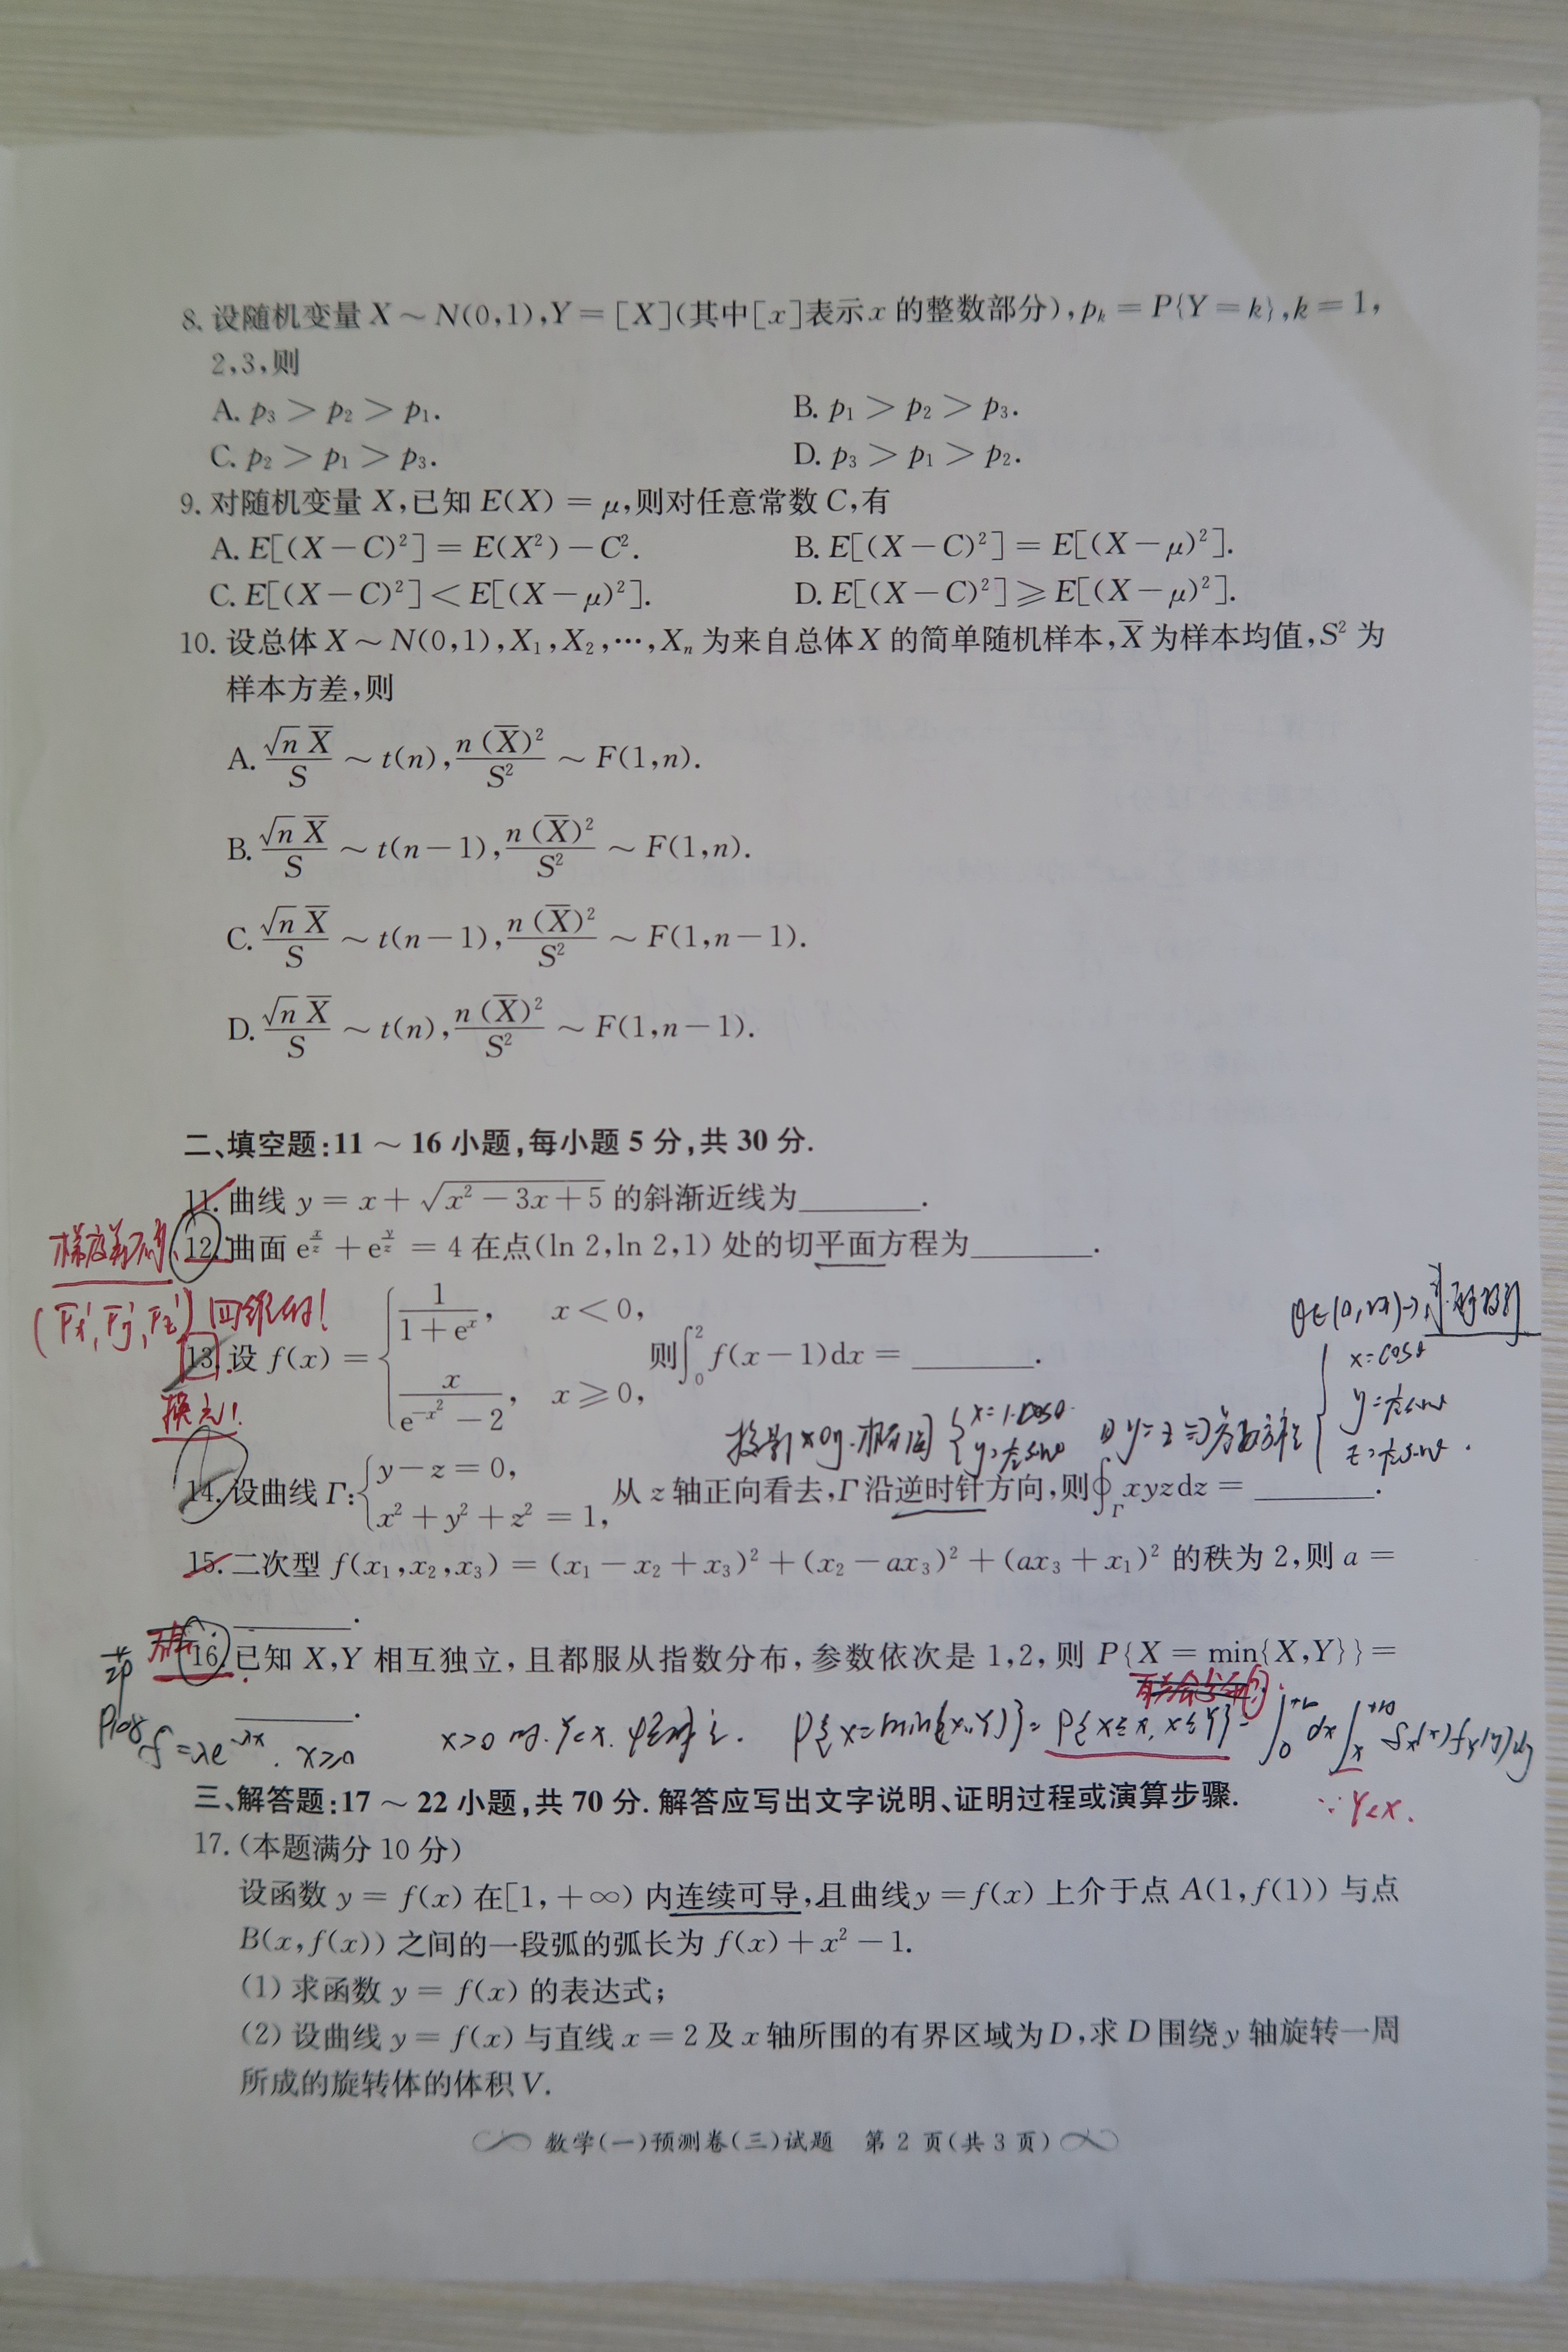 8. 设随机变量 X ~ N(0,1),Y = [X](其中[x]表示 x 的整数部分),pₖ = P{Y = k},k = 1,
2,3,则
A. p₃ > p₂ > p₁.
B. p₁ > p₂ > p₃.
C. p₂ > p₁ > p₃.
D. p₃ > p₁ > p₂.
9. 对随机变量 X,已知 E(X) = μ,则对任意常数 C,有
A. E[(X−C)²] = E(X²)−C².
B. E[(X−C)²] = E[(X−μ)²].
C. E[(X−C)²] < E[(X−μ)²].
D. E[(X−C)²] ⩾ E[(X−μ)²].
10. 设总体 X ~ N(0,1),X₁,X₂,⋯,Xₙ 为来自总体 X 的简单随机样本,X̄ 为样本均值,S² 为
样本方差,则
A. √n X̄ / S ~ t(n), n(X̄)² / S² ~ F(1,n).
B. √n X̄ / S ~ t(n−1), n(X̄)² / S² ~ F(1,n).
C. √n X̄ / S ~ t(n−1), n(X̄)² / S² ~ F(1,n−1).
D. √n X̄ / S ~ t(n), n(X̄)² / S² ~ F(1,n−1).
二、填空题:11 ~ 16 小题,每小题 5 分,共 30 分.
11. 曲线 y = x + √(x² − 3x + 5) 的斜渐近线为________.
12. 曲面 e^(x/z) + e^(y/z) = 4 在点(ln 2,ln 2,1) 处的切平面方程为________.
(Fx′, Fy′, Fz′)
13. 设 f(x) = { 1/(1+eˣ), x < 0, x/(e^(−x²) − 2), x ⩾ 0, 则∫₀² f(x−1)dx = ________.
换元!
x = cosθ
投影 xOy
14. 设曲线 Γ:{ y − z = 0, x² + y² + z² = 1, 从 z 轴正向看去,Γ 沿逆时针方向,则∮_Γ xyzdz = ________.
15. 二次型 f(x₁,x₂,x₃) = (x₁ − x₂ + x₃)² + (x₂ − ax₃)² + (ax₃ + x₁)² 的秩为 2,则 a =
________.
16. 已知 X,Y 相互独立,且都服从指数分布,参数依次是 1,2,则 P{X = min{X,Y}} =
________.
f = λe^(−λx). x≥0
P{X=min{X,Y}} = P{X≤x, X≤Y} = ∫₀^(+∞) dx ∫ₓ^(+∞) fx(x) fy(y) dy
∵ Y<X.
三、解答题:17 ~ 22 小题,共 70 分. 解答应写出文字说明、证明过程或演算步骤.
17. (本题满分 10 分)
设函数 y = f(x) 在[1,+∞) 内连续可导,且曲线 y = f(x) 上介于点 A(1,f(1)) 与点
B(x,f(x)) 之间的一段弧的弧长为 f(x) + x² − 1.
(1) 求函数 y = f(x) 的表达式;
(2) 设曲线 y = f(x) 与直线 x = 2 及 x 轴所围的有界区域为 D,求 D 围绕 y 轴旋转一周
所成的旋转体的体积 V.
数学(一)预测卷(三)试题 第 2 页(共 3 页)